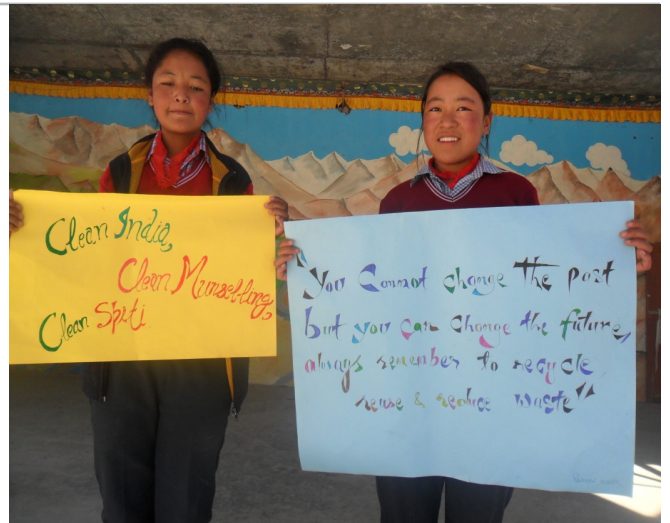 Clean India,
Clean Munsel-ling,
Clean Spiti
"You Cannot change The past
but you can change the future,
always remember to recycle
reuse & reduce waste"